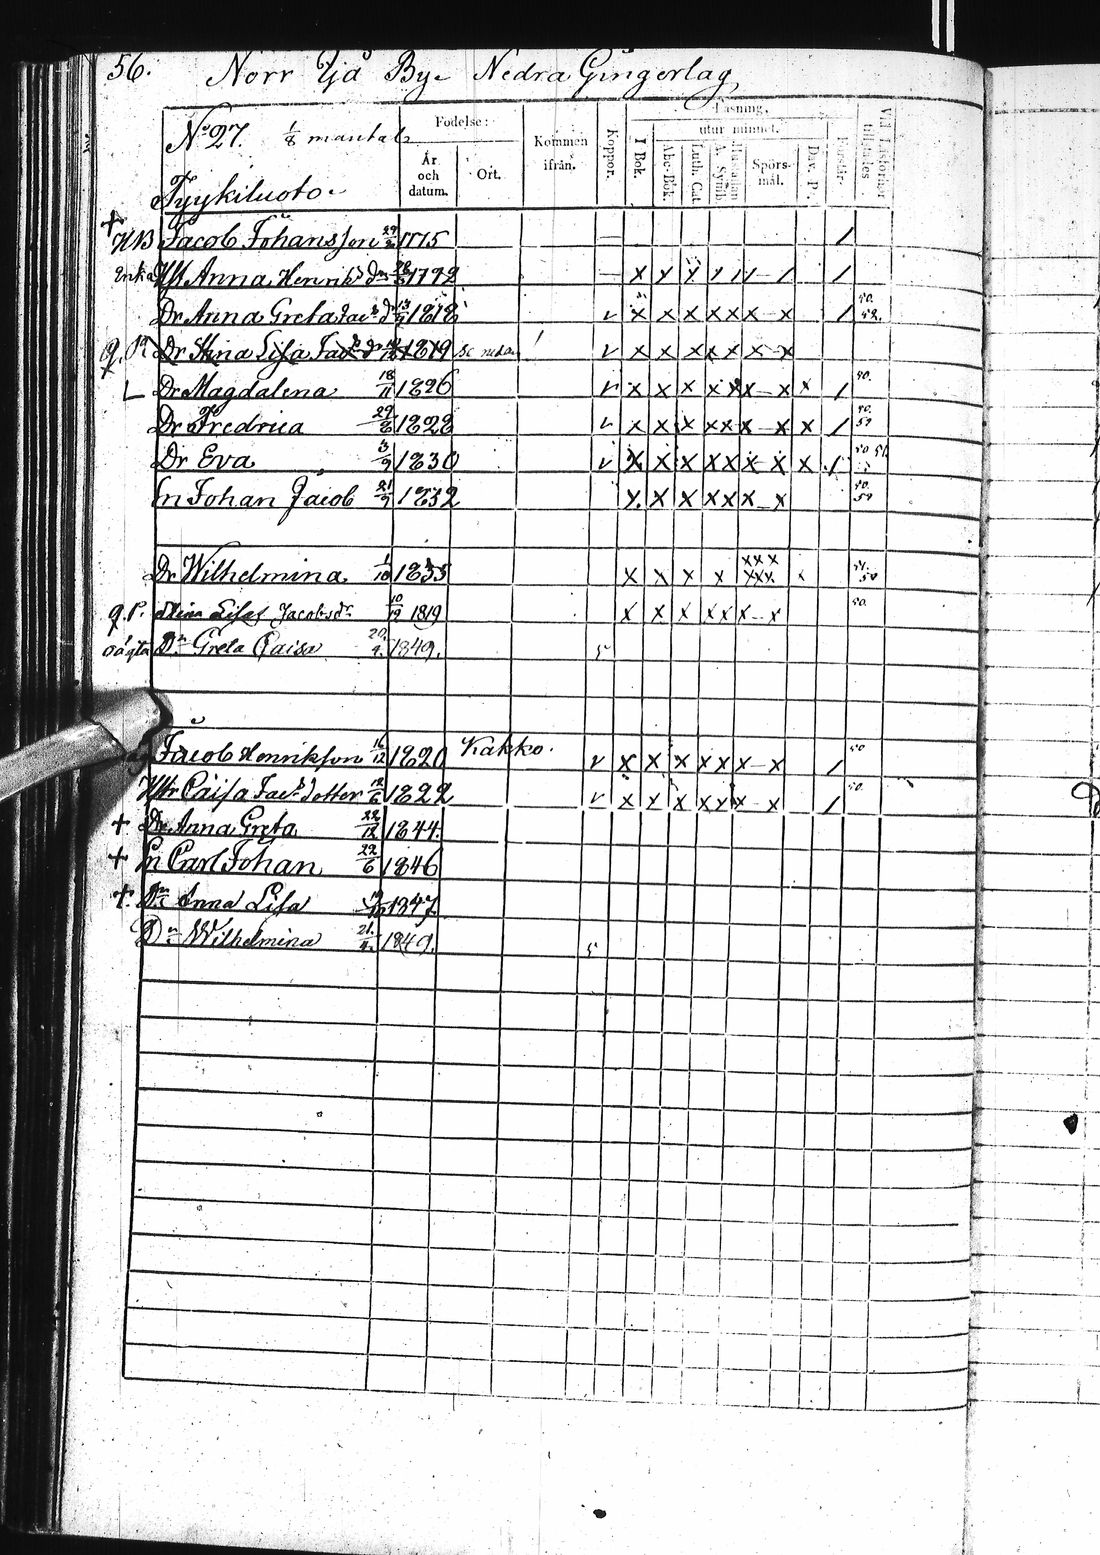 56. Norr Yjå By. Nedra Gingerlag,
No 27. 1/8 mantal
Tyykiluoto.
Födelse:
År och datum.
Ort.
Kommen ifrån.
Koppor.
Läsning,
I Bok.
utur minnet.
Abc-Bok.
Luth. Cat.
A. Symb.
Spörs-mål.
Dav. P.
+ HB Jacob Johansson 29 1775
Enka Hst Anna Henriksdr 1792 — x y x / / / — / /
Dr Anna Greta Jac.dr 13 1818 v x x x x x x - x / 50. 52.
q. P. Dr Stina Lisa Jac.dr 1819 se nedan v x x x x x x - x
L Dr Magdalena 18/11 1826 v x x x x x x - x x / 50.
Dr Fredrica 29/8 1828 v x x x x x x - x x / 50. 51
Dr Eva 3/9 1830 v x x x x x x - x x / 50 51
Sn Johan Jacob 21/9 1832 x x x x x x - x 50. 51
Dr Wilhelmina 1/10 1835 x x x x xxx xxx x 51.
q. P. Stina Lisa Jacobsdr 10/12 1819 x x x x x x - x 50.
oägta Dn Greta Caisa 20. 9. 1849.
Jacob Henriksson 16/12 1820 Kakko. v x x x x x x - x / 50
Hstr Caisa Jac.dotter 18/6 1822 v x x x x x x - x / 50.
+ Dr Anna Greta 22/12 1844.
+ Sn Carl Johan 22/6 1846
+. Dn Anna Lisa 1847
Dn Wilhelmina 21. 1849.